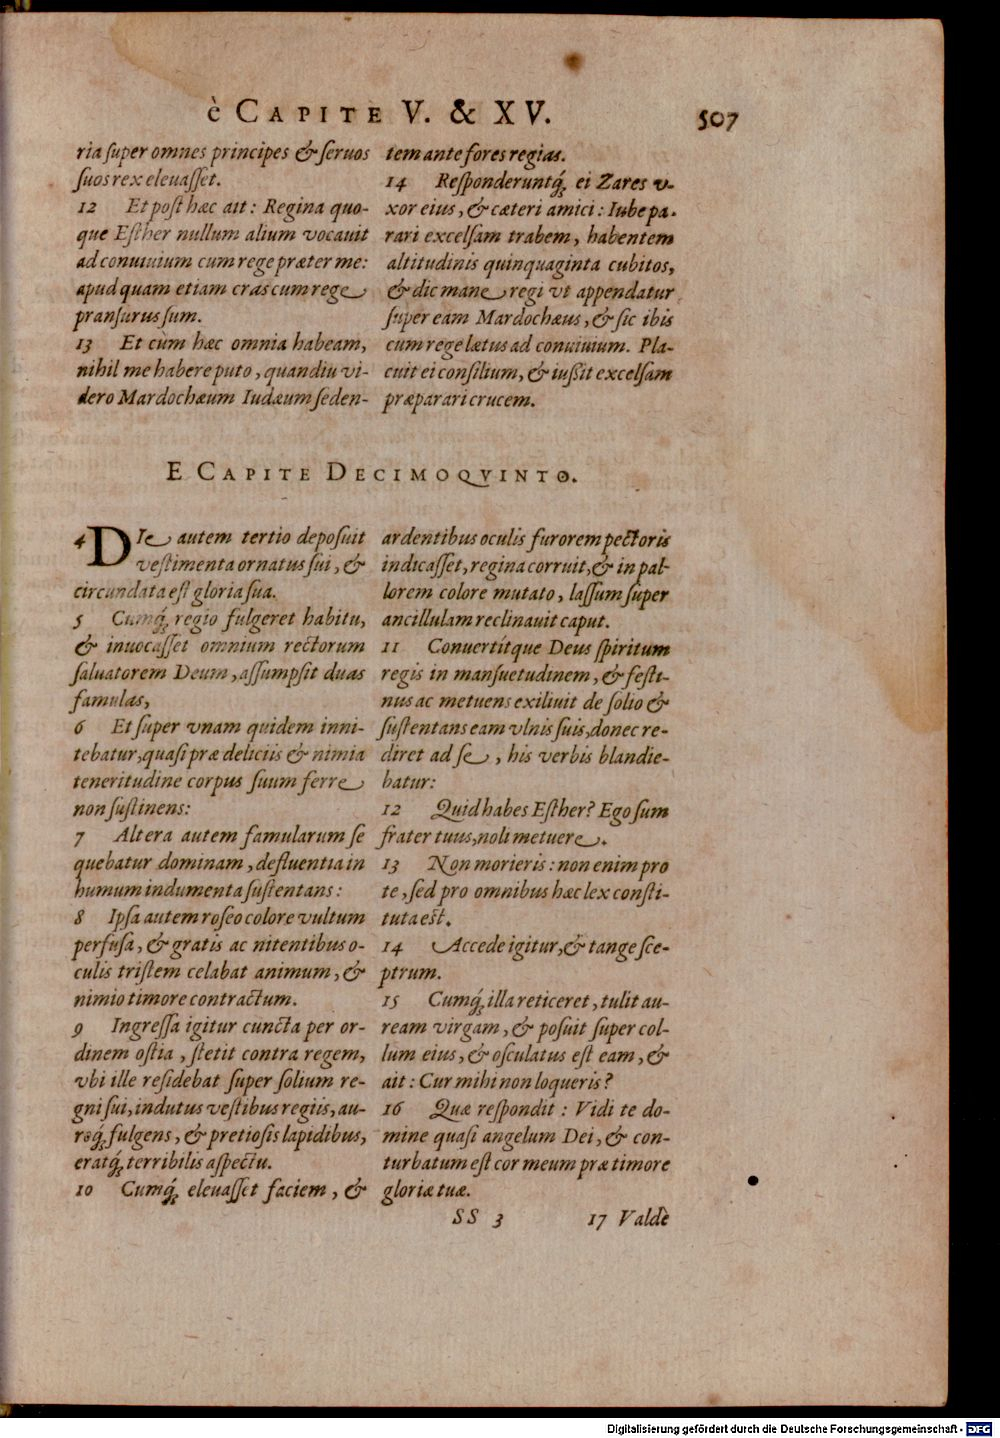 è CAPITE V. & XV. 507
ria ſuper omnes principes & ſeruos
ſuos rex eleuaſſet.
12 Et poſt hæc ait: Regina quo-
que Eſther nullum alium vocauit
ad conuiuium cum rege præter me:
apud quam etiam cras cum rege
pranſurus ſum.
13 Et cùm hæc omnia habeam,
nihil me habere puto, quandiu vi-
dero Mardochæum Iudæum ſeden-
tem ante fores regias.
14 Reſponderuntq́; ei Zares v-
xor eius, & cæteri amici: Iube pa-
rari excelſam trabem, habentem
altitudinis quinquaginta cubitos,
& dic mane regi vt appendatur
ſuper eam Mardochæus, & ſic ibis
cum rege lætus ad conuiuium. Pla-
cuit ei conſilium, & iuſſit excelſam
præparari crucem.
E CAPITE DECIMOQVINTO.
4 DIe autem tertio depoſuit
veſtimenta ornatus ſui, &
circundata eſt gloria ſua.
5 Cumq́; regio fulgeret habitu,
& inuocaſſet omnium rectorum
ſaluatorem Deum, aſſumpſit duas
famulas,
6 Et ſuper vnam quidem inni-
tebatur, quaſi præ deliciis & nimia
teneritudine corpus ſuum ferre
non ſuſtinens:
7 Altera autem famularum ſe
quebatur dominam, defluentia in
humum indumenta ſuſtentans:
8 Ipſa autem roſeo colore vultum
perfuſa, & gratis ac nitentibus o-
culis triſtem celabat animum, &
nimio timore contractum.
9 Ingreſſa igitur cuncta per or-
dinem oſtia, ſtetit contra regem,
vbi ille reſidebat ſuper ſolium re-
gni ſui, indutus veſtibus regiis, au-
roq́; fulgens, & pretioſis lapidibus,
eratq́; terribilis aſpectu.
10 Cumq́; eleuaſſet faciem, &
ardentibus oculis furorem pectoris
indicaſſet, regina corruit, & in pal-
lorem colore mutato, laſſum ſuper
ancillulam reclinauit caput.
11 Conuertítque Deus ſpiritum
regis in manſuetudinem, & feſti-
nus ac metuens exiliuit de ſolio &
ſuſtentans eam vlnis ſuis, donec re-
diret ad ſe, his verbis blandie-
batur:
12 Quid habes Eſther? Ego ſum
frater tuus, noli metuere.
13 Non morieris: non enim pro
te, ſed pro omnibus hæc lex conſti-
tuta eſt.
14 Accede igitur, & tange ſce-
ptrum.
15 Cumq́; illa reticeret, tulit au-
ream virgam, & poſuit ſuper col-
lum eius, & oſculatus eſt eam, &
ait: Cur mihi non loqueris?
16 Quæ reſpondit: Vidi te do-
mine quaſi angelum Dei, & con-
turbatum eſt cor meum præ timore
gloriæ tuæ.
SS 3 17 Valdè
Digitalisierung gefördert durch die Deutsche Forschungsgemeinschaft - DFG